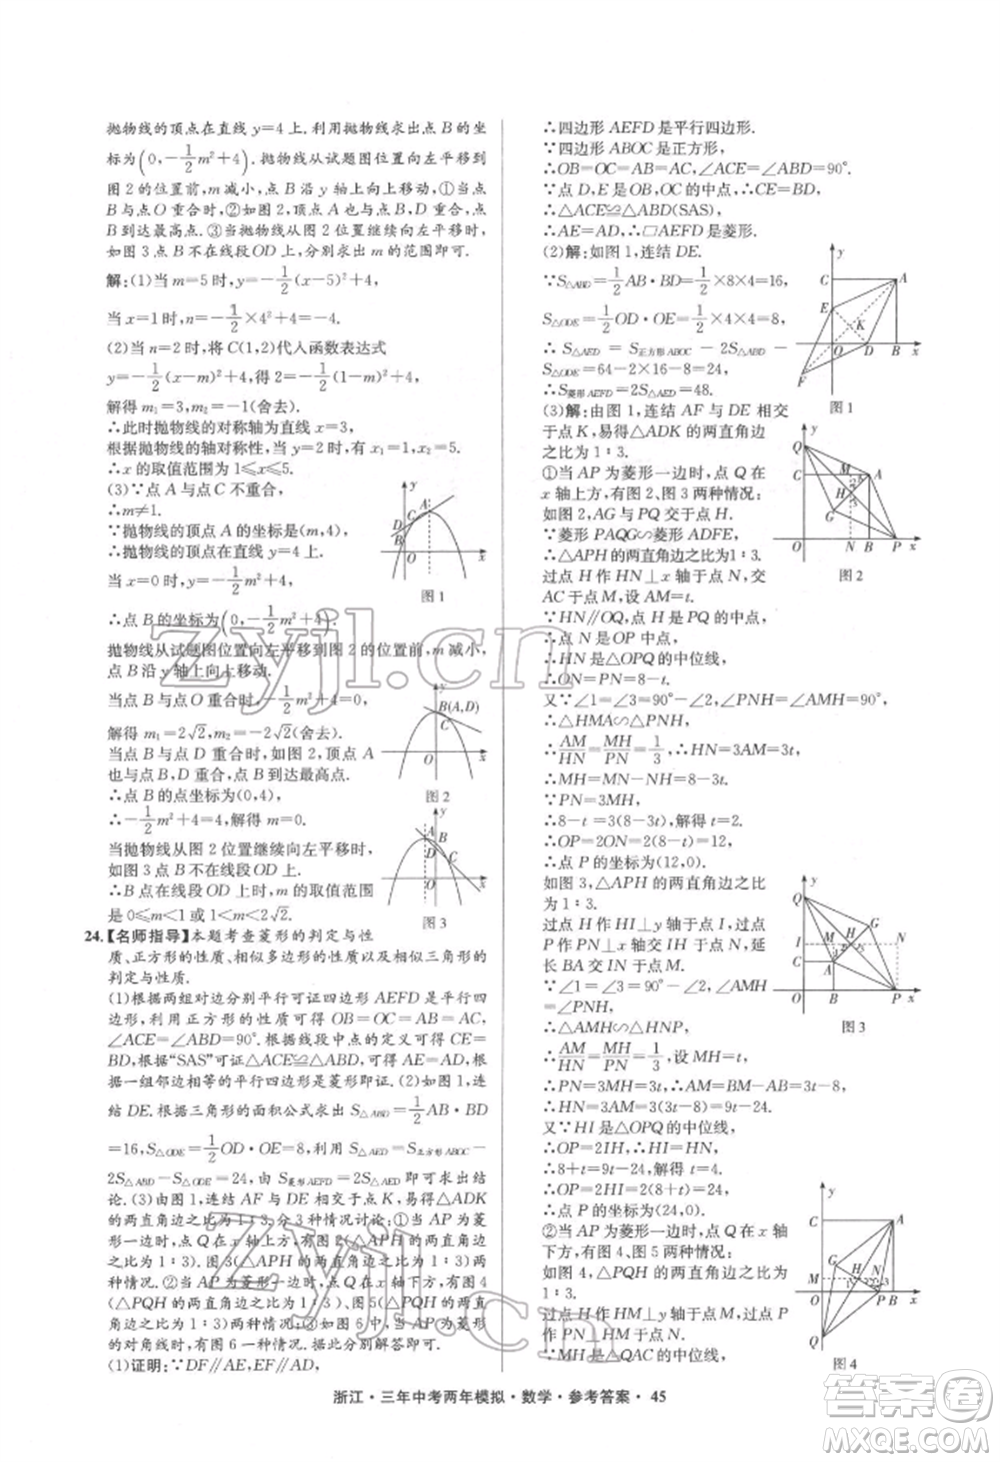 抛物线的顶点在直线 y=4 上. 利用抛物线求出点 B 的坐
标为(0,-1/2m²+4). 抛物线从试题图位置向左平移到
图 2 的位置前,m 减小,点 B 沿 y 轴上向上移动,①当点
B 与点 O 重合时,②如图 2,当点 B 与点 D 重合时,点
B 到达最高点. ③当抛物线从图 2 位置继续向左平移时,
如图 3 点 B 不在线段 OD 上,分别求出 m 的范围即可.
解:(1)当 m=5 时,y=-1/2(x-5)²+4,
当 x=1 时,y=-1/2×4²+4=-4.
(2)当 n=2 时,将 C(1,2)代入函数表达式
y=-1/2(x-m)²+4,得 2=-1/2(1-m)²+4,
解得 m₁=3,m₂=-1(舍去).
∴此时抛物线的对称轴为直线 x=3,
根据抛物线的轴对称性,当 y=2 时,有 x₁=1,x₂=5.
∴x 的取值范围为 1≤x≤5.
(3)∵点 A 与点 C 不重合,
∴m≠1.
∵抛物线的顶点 A 的坐标是(m,4),
∴抛物线的顶点在直线 y=4 上.
当 x=0 时,y=-1/2m²+4,
∴点 B 的坐标为(0,-1/2m²+4).
抛物线从试题图位置向左平移到图 2 的位置前,m 减小,
点 B 沿 y 轴上向上移动.
当点 B 与点 O 重合时,-1/2m²+4=0,
解得 m₁=2√2,m₂=-2√2(舍去).
当点 B 与点 D 重合时,如图 2,顶点 A
也与点 B,D 重合,点 B 到达最高点.
∴点 B 的坐标为(0,4),
∴-1/2m²+4=4,解得 m=0.
当抛物线从图 2 位置继续向左平移时,
如图 3 点 B 不在线段 OD 上.
∴B 点在线段 OD 上时,m 的取值范围
是 0≤m<1 或 1<m<2√2.
图 1
图 2
图 3
24.【名师指导】本题考查菱形的判定与性
质、正方形的性质、相似多边形的性质以及相似三角形的
判定与性质.
(1)根据两组对边分别平行可证四边形 AEFD 是平行四
边形,利用正方形的性质可得 OB=OC=AB=AC,
∠ACE=∠ABD=90°. 根据线段中点的定义可得 CE=
BD,根据“SAS”可证△ACE≌△ABD,可得 AE=AD,根
据一组邻边相等的平行四边形是菱形即证. (2)如图 1,连
结 DE. 根据三角形的面积公式求出 S△ABD=1/2AB·BD
=16,S△ODE=1/2OD·OE=8,利用 S△AED=S正方形ABOC-
2S△ABD-S△ODE=24,由 S菱形AEFD=2S△AED即可求出结
论. (3)由图 1,连结 AF 与 DE 相交于点 K,易得△ADK
的两直角边之比为 1∶3,分 3 种情况讨论:①当 AP 为菱
形一边时,点 Q 在 x 轴上方,有图 2(△APH 的两直角边
之比为 1∶3)、图 3(△APH 的两直角边之比为 1∶3)两
种情况;②当 AP 为菱形一边时,点 Q 在 x 轴下方,有图 4
(△PQH 的两直角边之比为 1∶3)、图 5(△PQH 的两直
角边之比为 1∶3)两种情况;③如图 6 中,当 AP 为菱形的
对角线时,有图 6 一种情况. 分别解答即可.
(1)证明:∵DF∥AE,EF∥AD,
∴四边形 AEFD 是平行四边形.
∵四边形 ABOC 是正方形,
∴OB=OC=AB=AC,∠ACE=∠ABD=90°.
∵点 D,E 是 OB,OC 的中点,∴CE=BD,
∴△ACE≌△ABD(SAS),
∴AE=AD,∴□AEFD 是菱形.
(2)解:如图 1,连结 DE.
∵S△ABD=1/2AB·BD=1/2×8×4=16,
S△ODE=1/2OD·OE=1/2×4×4=8,
∴S△AED=S正方形ABOC-2S△ABD-S△ODE
=64-2×16-8=24,
∴S菱形AEFD=2S△AED=48.
图 1
(3)解:由图 1,连结 AF 与 DE 相交
于点 K,易得△ADK 的两直角边
之比为 1∶3.
①当 AP 为菱形一边时,点 Q 在
x 轴上方,有图 2、图 3 两种情况:
如图 2,AG 与 PQ 交于点 H.
∵菱形 PAQG∽菱形 ADFE,
∴△APH 的两直角边之比为 1∶3.
过点 H 作 HN⊥x 轴于点 N,交
AC 于点 M,设 AM=t.
图 2
∵HN∥OQ,点 H 是 PQ 的中点,
∴点 N 是 OP 中点,
∴HN 是△OPQ 的中位线,
∴ON=PN=8-t.
又∵∠1=∠3=90°-∠2,∠PNH=∠AMH=90°,
∴△HMA∽△PNH,
∴AM/HN=MH/PN=1/3,∴HN=3AM=3t,
∴MH=MN-NH=8-3t.
∵PN=3MH,
∴8-t=3(8-3t),解得 t=2.
∴OP=2ON=2(8-t)=12,
∴点 P 的坐标为(12,0).
如图 3,△APH 的两直角边之比
为 1∶3.
过点 H 作 HI⊥y 轴于点 I,过点
P 作 PN⊥x 轴交 IH 于点 N,延
长 BA 交 IN 于点 M.
∵∠1=∠3=90°-∠2,∠AMH
=∠PNH,
图 3
∴△AMH∽△HNP,
∴AM/HN=MH/PN=1/3,设 MH=t,
∴PN=3MH=3t,∴AM=BM-AB=3t-8,
∴HN=3AM=3(3t-8)=9t-24.
又∵HI 是△OPQ 的中位线,
∴OP=2IH,∴HI=HN,
∴8+t=9t-24,解得 t=4.
∴OP=2HI=2(8+t)=24,
∴点 P 的坐标为(24,0).
②当 AP 为菱形一边时,点 Q 在 x 轴
下方,有图 4、图 5 两种情况:
如图 4,△PQH 的两直角边之比
为 1∶3.
过点 H 作 HM⊥y 轴于点 M,过点
P 作 PN⊥HM 于点 N.
∵MH 是△QAC 的中位线,
图 4
浙江·三年中考两年模拟·数学·参考答案·45
zyjl.cn
zyjl.cn
答案圈
MXQE.COM